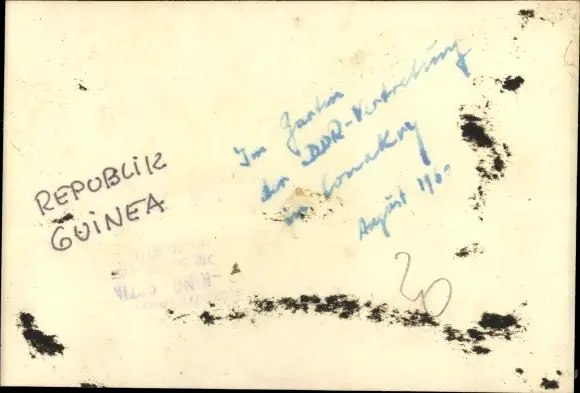 REPUBLIK
GUINEA
Im Garten
der DDR-Vertretung
in Conakry
August 1960
30